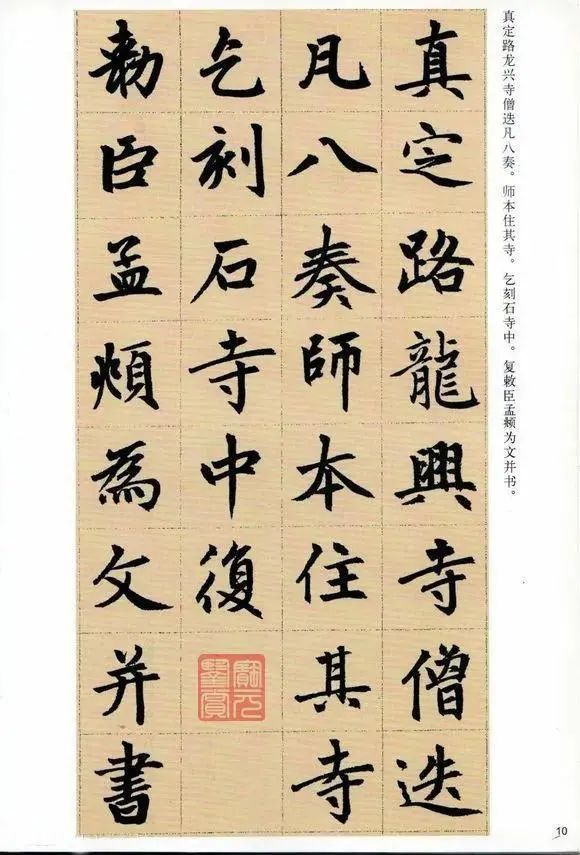 真定路龙兴寺僧迭凡八奏。师本住其寺。乞刻石寺中。复敕臣孟頫为文并书。
真定路龍興寺僧迭
凡八奏師本住其寺
乞刻石寺中復
勅臣孟頫為文并書
10